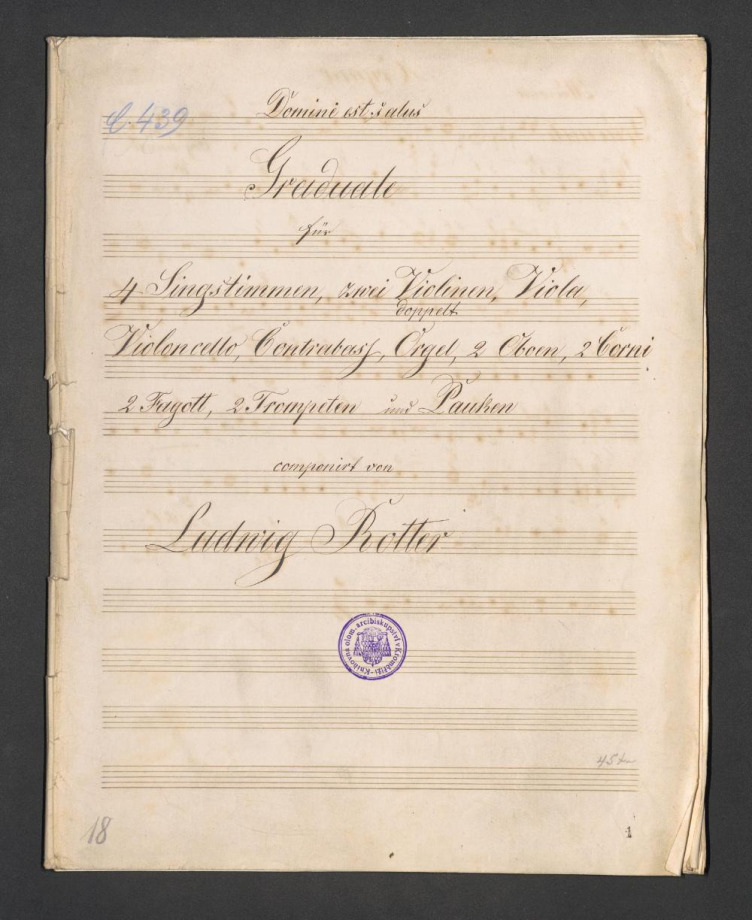 C. 439
Domini est salus
Graduale
für
4 Singstimmen, zwei Violinen, Viola,
doppelt
Violoncello, Contrabass, Orgel, 2 Oboen, 2 Corni
2 Fagott, 2 Trompeten und Pauken
componirt von
Ludwig Rotter
Knihovna olom. arcibiskupství v Kroměříži
18
1